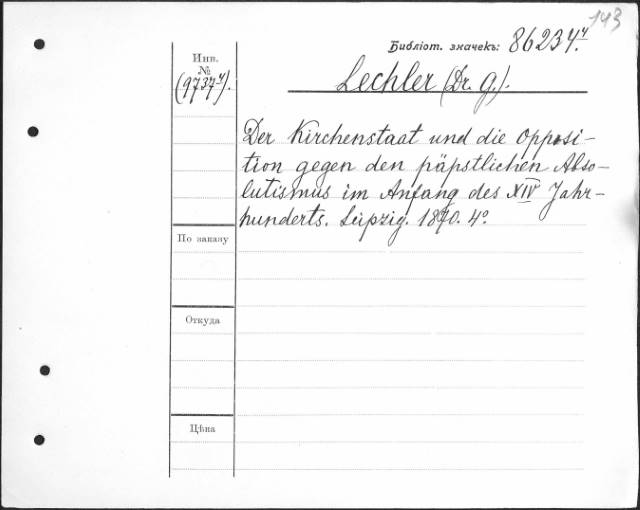 143
Библіот. значекъ: 86234.⁴
Инв.
№
(9737⁴).
Lechler (Dr. G.).
Der Kirchenstaat und die Opposi-
tion gegen den päpstlichen Abso-
lutismus im Anfang des XIV Jahr-
hunderts. Leipzig. 1870. 4°.
По заказу
Откуда
Цѣна